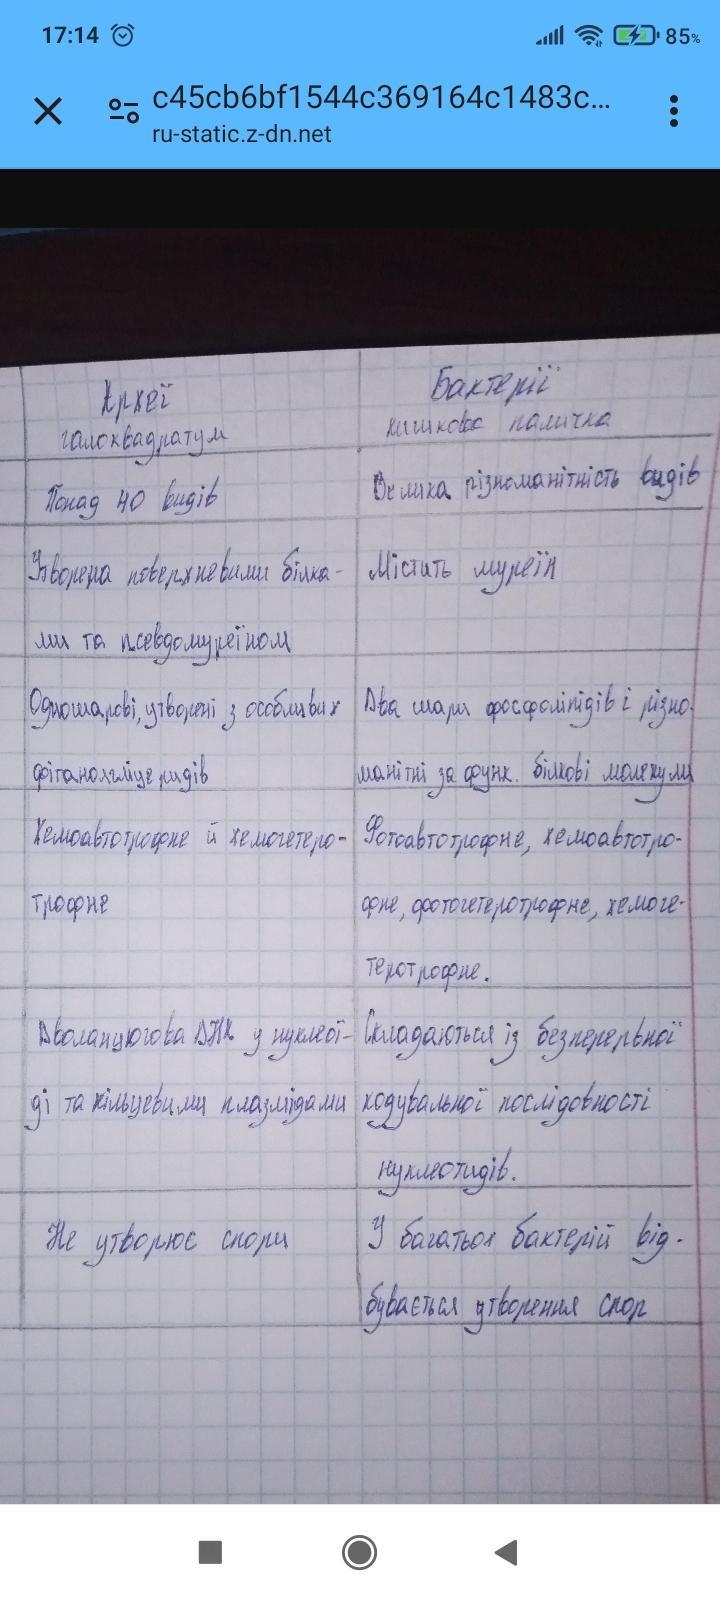 17:14
85%
c45cb6bf1544c369164c1483c...
ru-static.z-dn.net
Археї
галоквадратум
Бактерії
кишкова паличка
Понад 40 видів
Велика різноманітність видів
Утворена поверхневими білка-
ми та псевдомуреїном
Містить муреїн
Одношарові, утворені з особливих
Два шари фосфоліпідів і різно-
манітні за функ. білкові молекули
Хемоавтотрофне й хемогетеро-
трофне
Фотоавтотрофне, хемоавтотро-
фне, фотогетеротрофне, хемоге-
теротрофне.
Дволанцюгова ДНК у нуклеої-
ді та кільцевими плазмідами
Складаються із безперервної
кодувальної послідовності
нуклеотидів.
Не утворює спори
У багатьох бактерій від-
бувається утворення спор